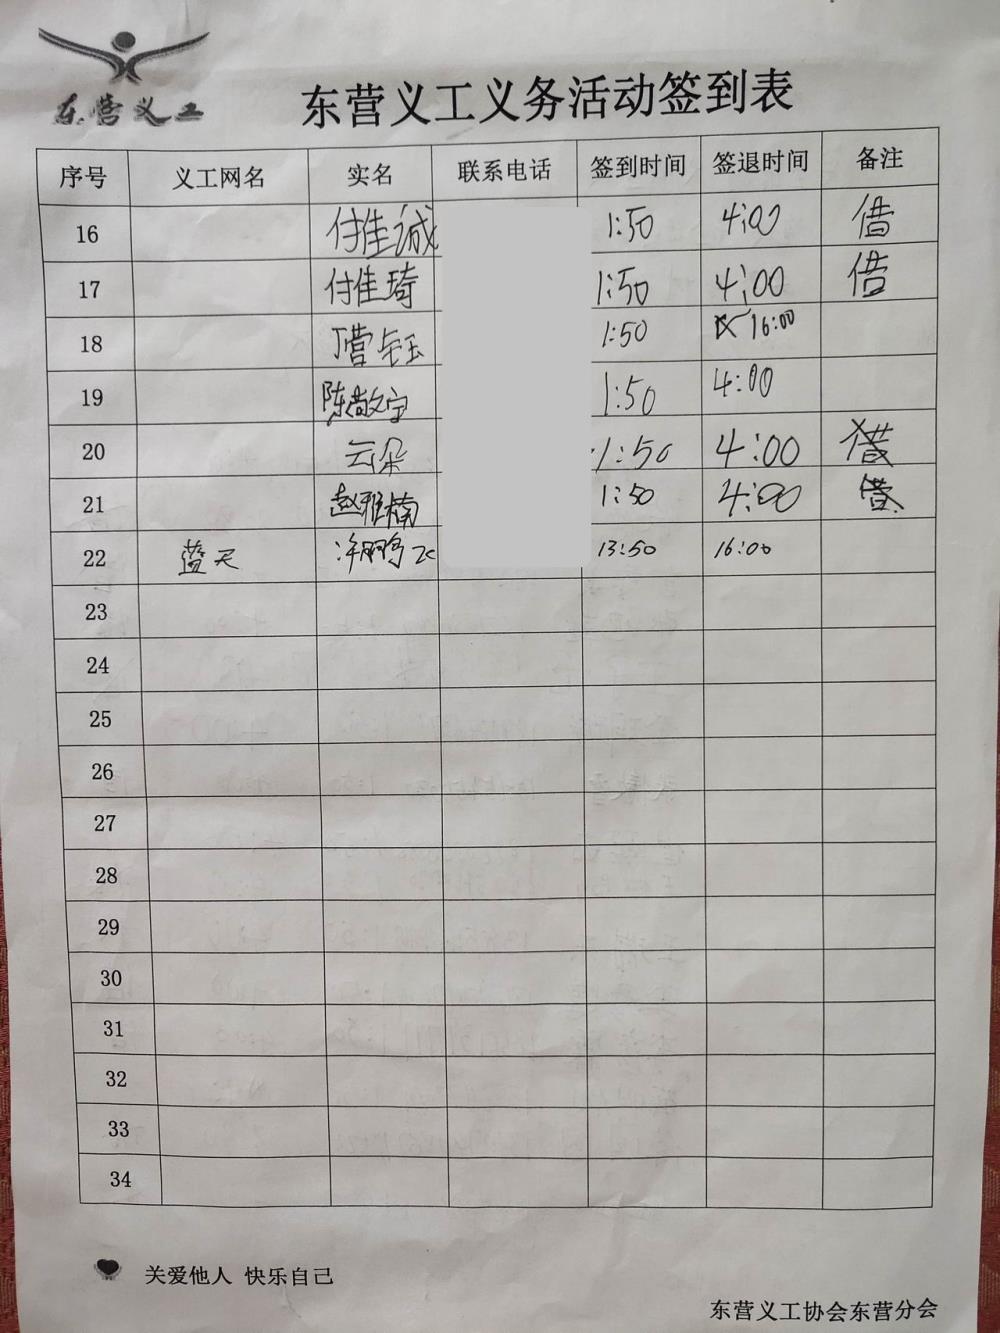 东营义工
东营义工义务活动签到表
序号 义工网名 实名 联系电话 签到时间 签退时间 备注
16 付佳诚 1:50 4:00 借
17 付佳琦 1:50 4:00 借
18 丁营钰 1:50 16:00
19 陈敬宁 1:50 4:00
20 云朵 1:50 4:00 借
21 赵雅楠 1:50 4:00 借
22 蓝天 13:50 16:00
23
24
25
26
27
28
29
30
31
32
33
34
关爱他人 快乐自己
东营义工协会东营分会